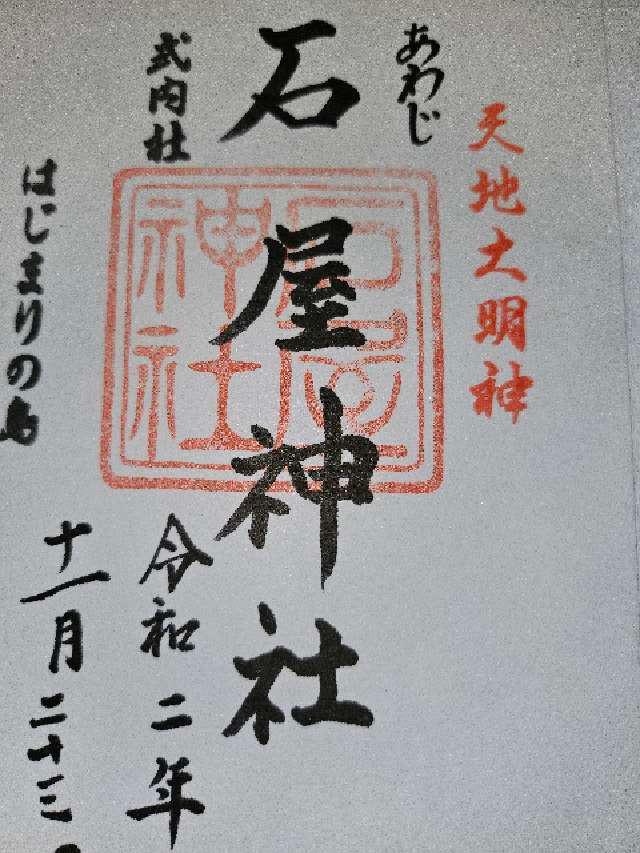 天地大明神
あわじ
石屋神社
石屋神社
式内社
はじまりの島
令和二年
十一月二十三